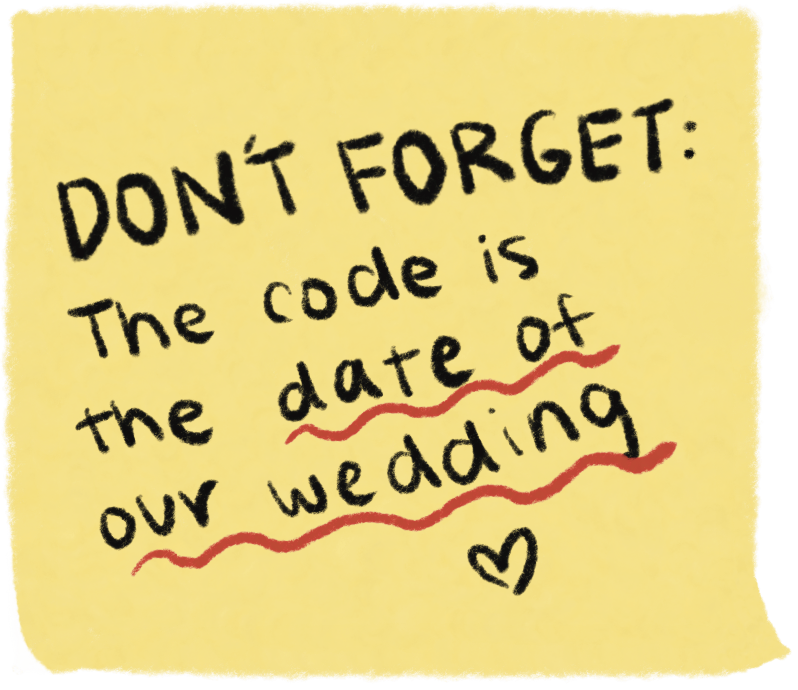 DON'T FORGET:
The code is
the date of
our wedding